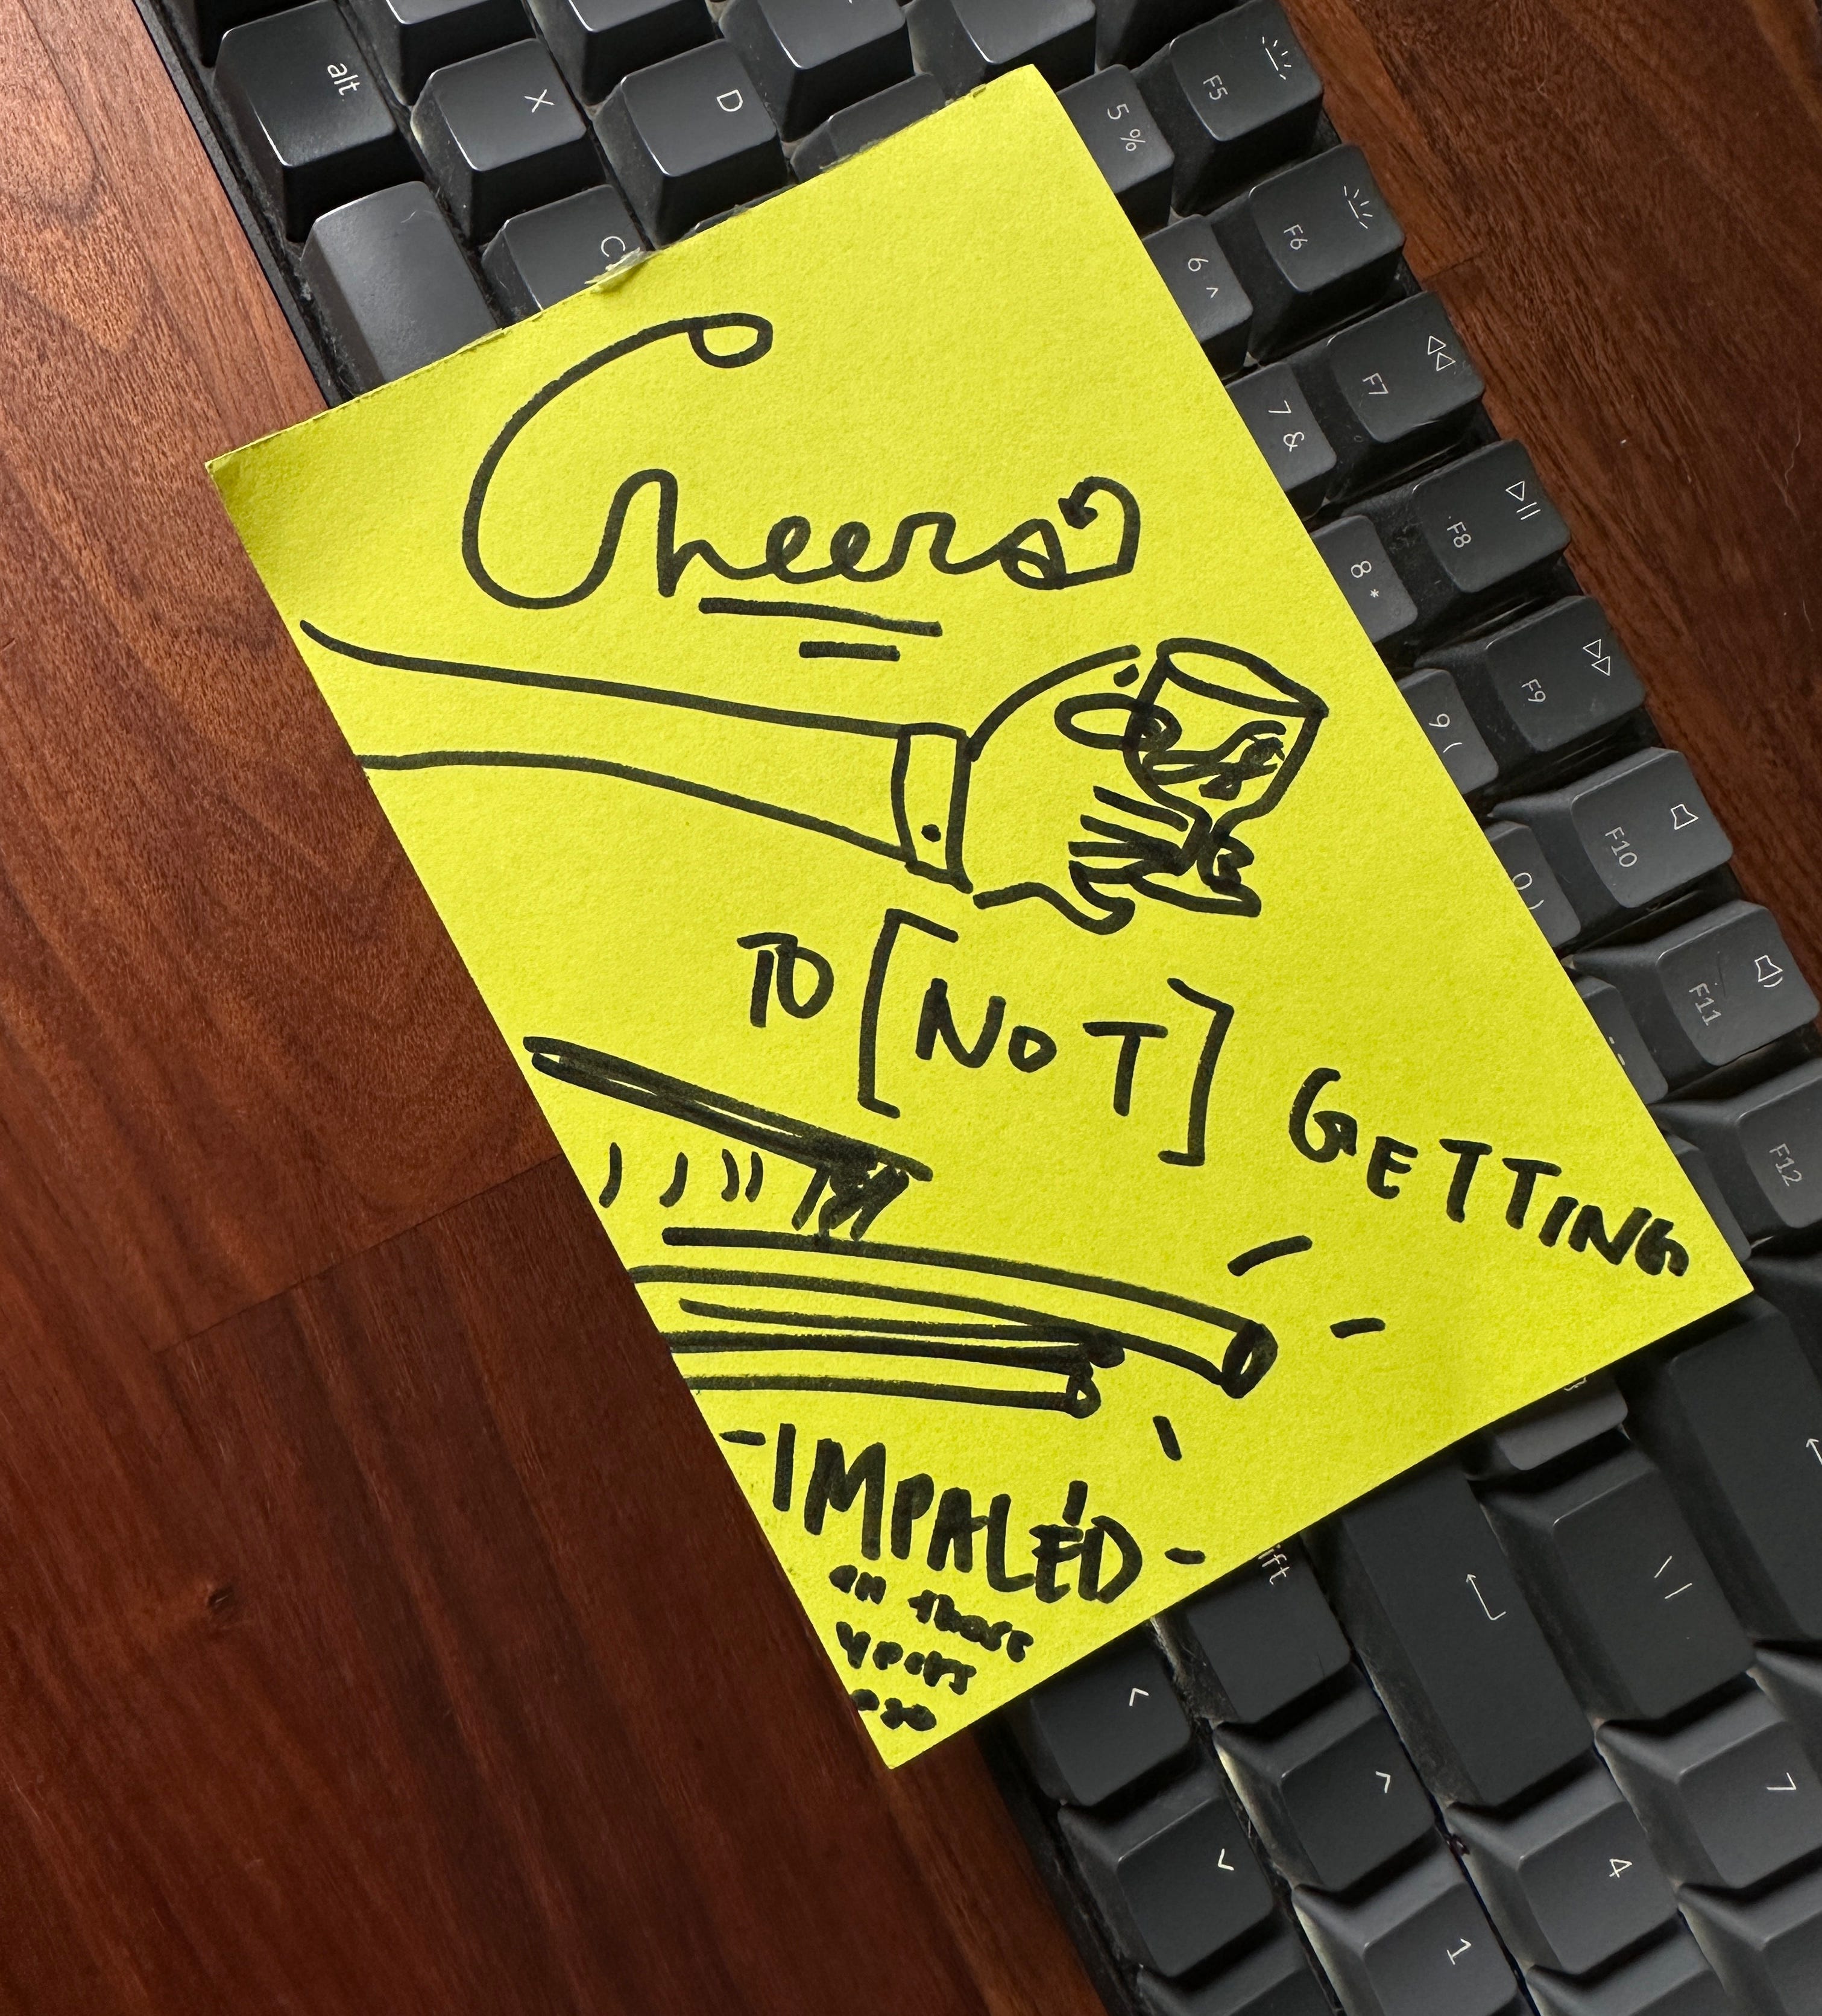 Cheers
TO [NOT] GETTING
-IMPALED-
all those
years
ago
alt
X
D
C
5 %
F5
6 ^
F6
7 &
F7
8 *
F8
9 (
F9
0 )
F10
F11
F12
ift
\ |
7
4
1